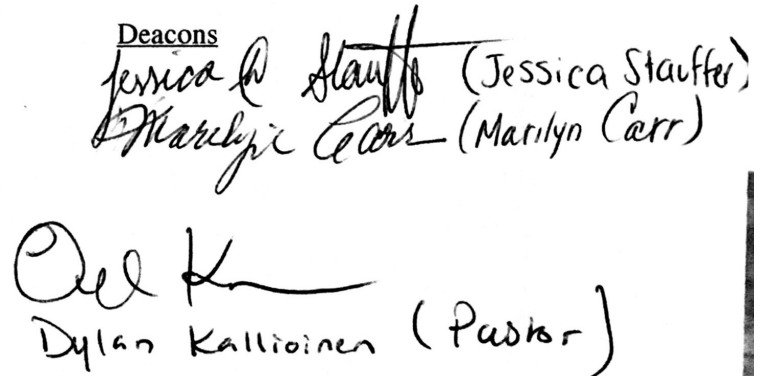 Deacons
Jessica @ Stauffer (Jessica Stauffer)
Marilyn Carr (Marilyn Carr)
Dylan Kallioinen (Pastor)